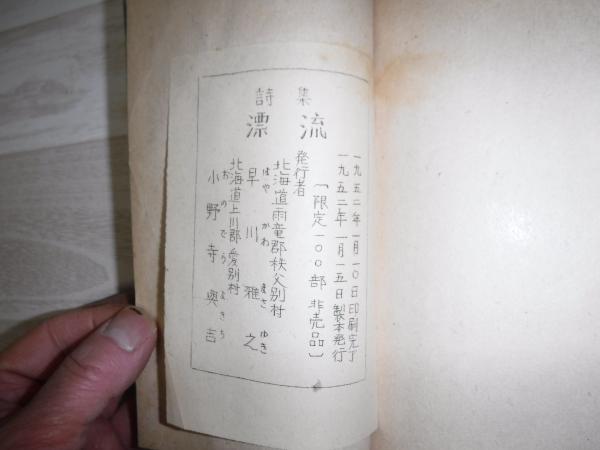 詩集
漂流
一九五二年一月一〇日印刷完了
一九五二年一月一五日製本発行
〔限定一〇〇部 非売品〕
発行者
北海道雨竜郡秩父別村
早川雅之
はやかわまさゆき
北海道上川郡愛別村
小野寺與吉
おのでらよきち